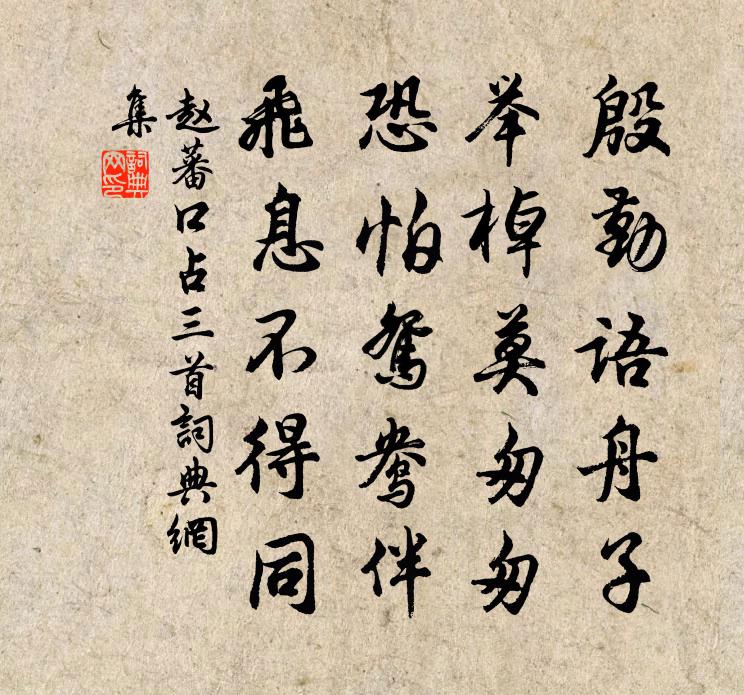 殷勤语舟子
举棹莫匆匆
恐怕鸳鸯伴
飛息不得同
赵蕃口占三首詞典網
集
詞典
网印